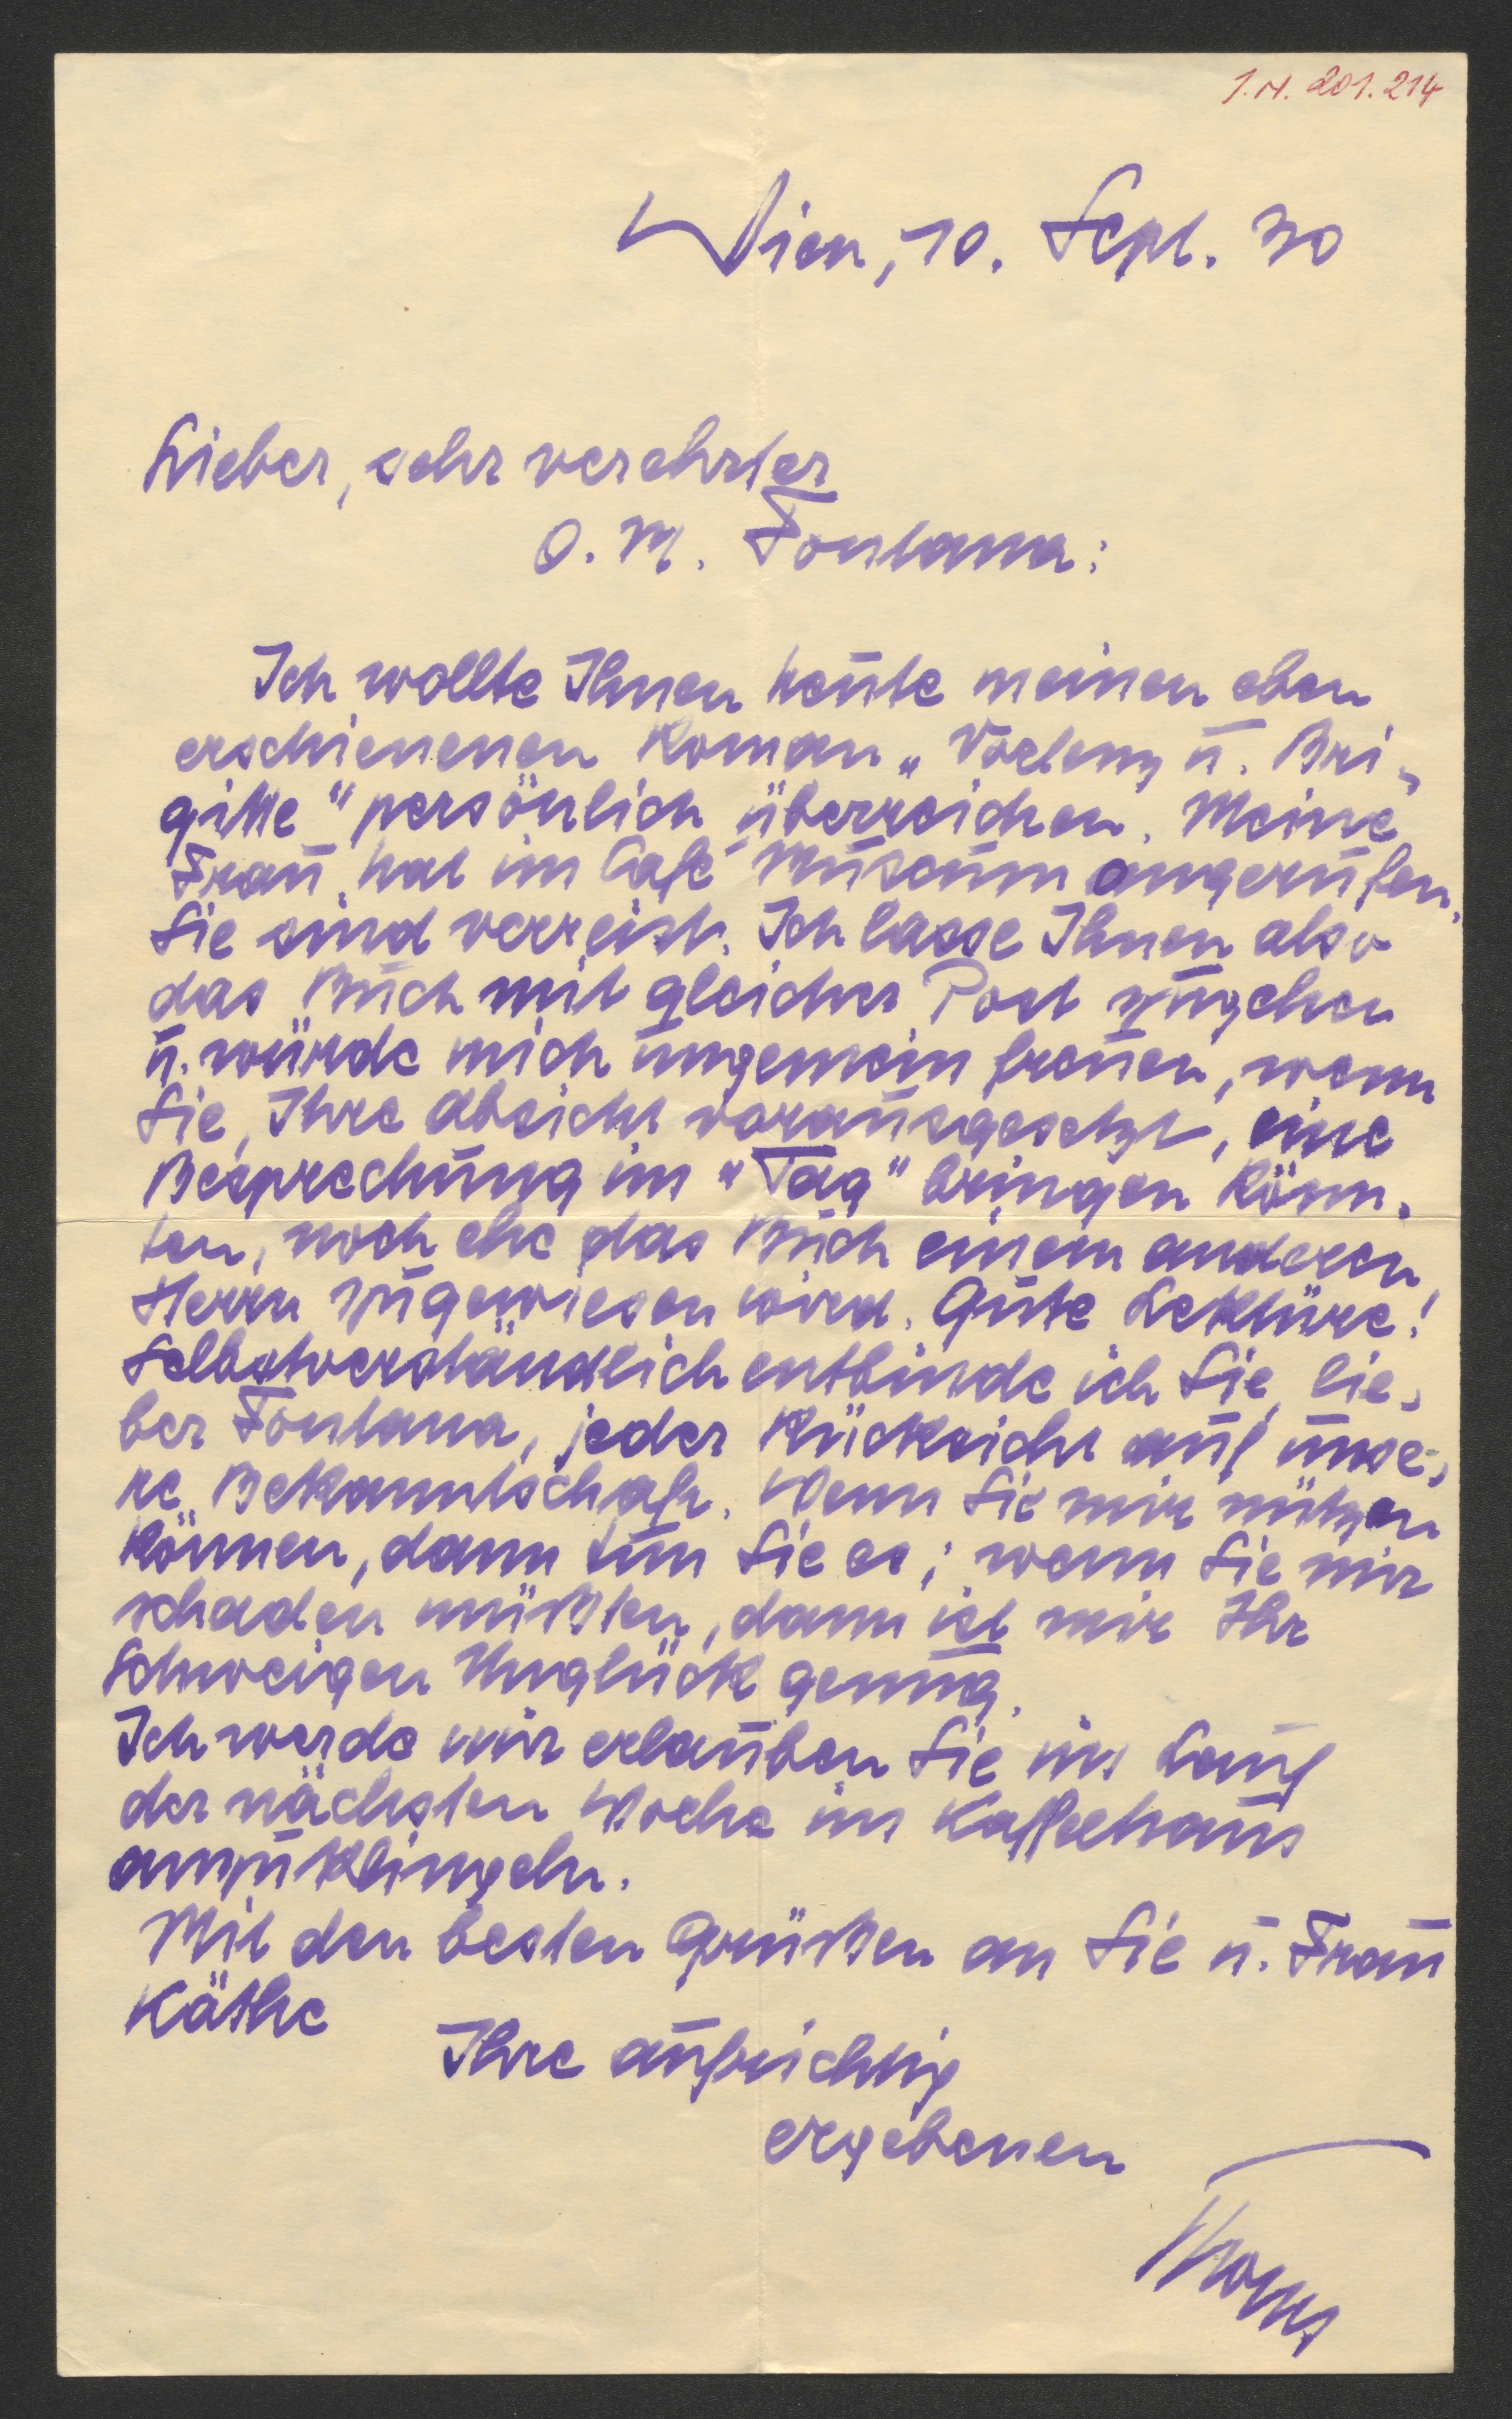 I.N. 201.214
Wien, 10. Sept. 30
Lieber, sehr verehrter
O. M. Fontana:
Ich wollte Ihnen heute meinen eben
erschienenen Roman „ u. Bri-
gitte" persönlich überreichen. Meine
Frau hat im Café Museum angerufen.
Sie sind verreist. Ich lasse Ihnen also
das Buch mit gleicher Post zugehen
u. würde mich ungemein freuen, wenn
Sie, Ihre Absicht vorausgesetzt, eine
Besprechung im "Tag" bringen könn-
ten, noch ehe das Buch einem anderen
Herrn zugewiesen wird. Gute Lektüre!
Selbstverständlich entbinde ich Sie, lie-
ber Fontana, jeder Rücksicht auf unse-
re Bekanntschaft. Wenn Sie mir nützen
können, dann tun Sie es; wenn Sie mir
schaden müßten, dann ist mir Ihr
Schweigen Unglück genug.
Ich werde mir erlauben Sie im Lauf
der nächsten Woche im Kaffeehaus
anzuklingeln.
Mit den besten Grüßen an Sie u. Frau
Käthe
Ihre aufrichtig
ergebenen